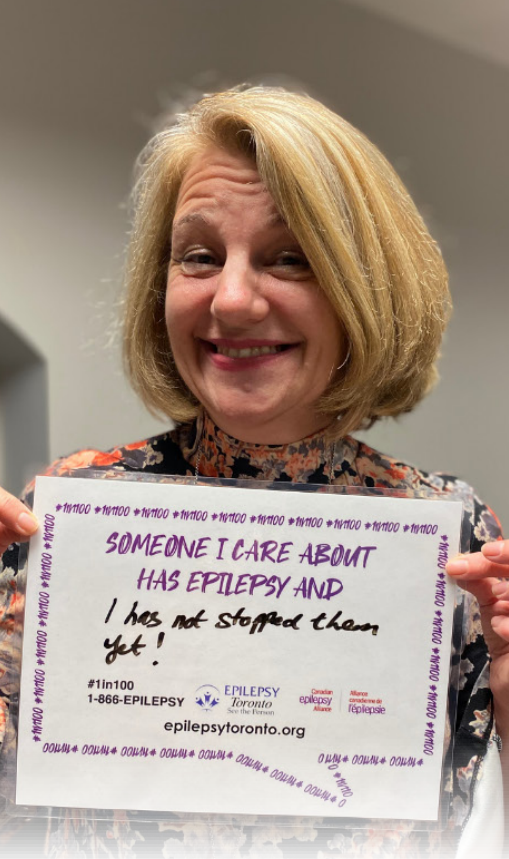 #1in100 #1in100 #1in100 #1in100 #1in100 #1in100 #1in100 #1in100 #1in100 #1in100
SOMEONE I CARE ABOUT
HAS EPILEPSY AND
I has not stopped them
yet!
#1in100
1-866-EPILEPSY
EPILEPSY
Toronto
See the Person
Canadian
epilepsy
Alliance
Alliance
canadienne de
l'épilepsie
epilepsytoronto.org